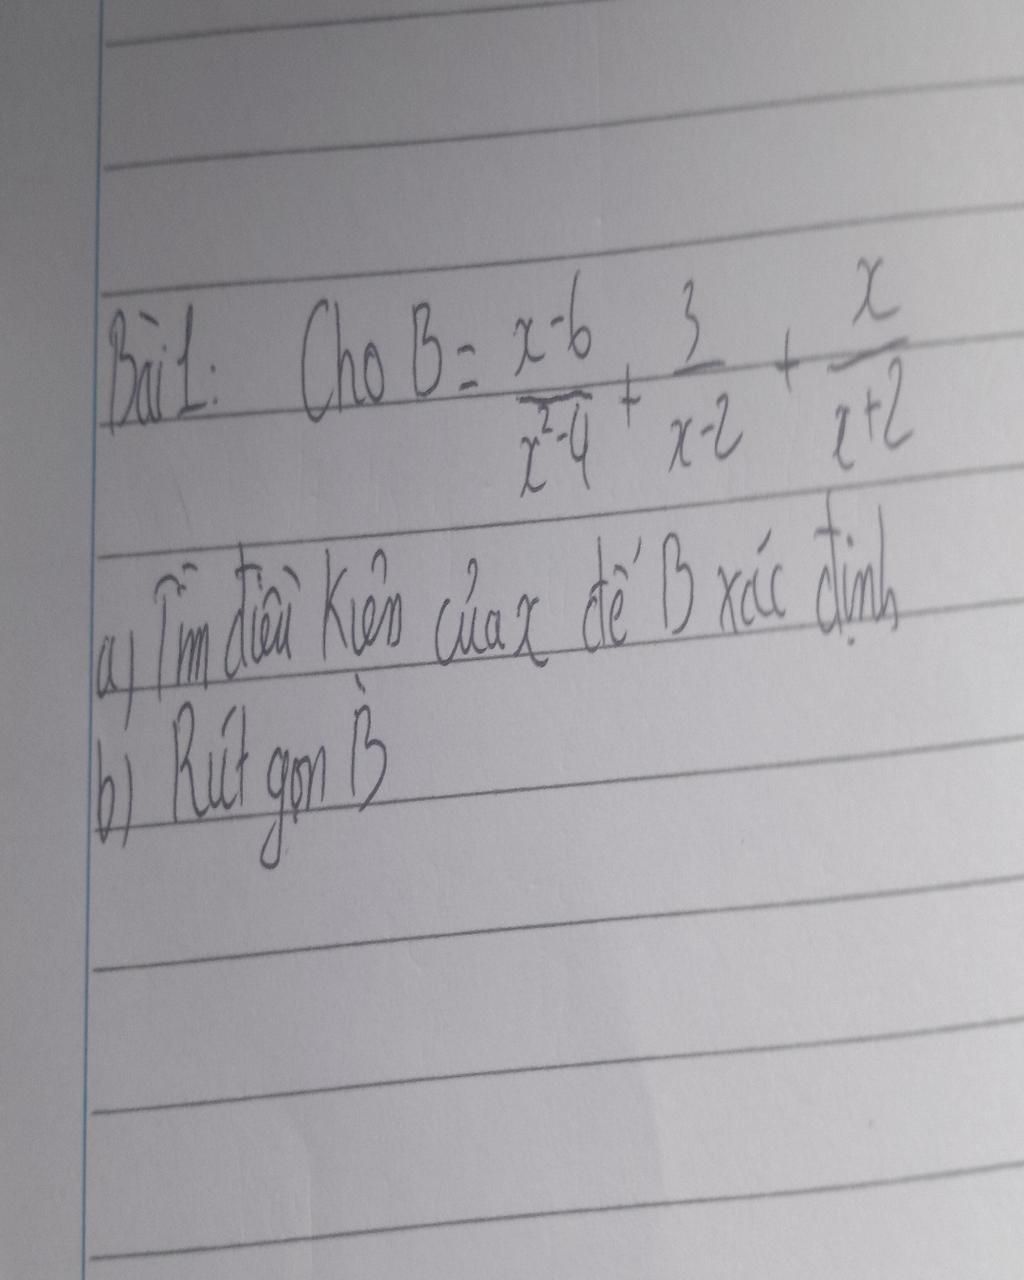 Bài 1: Cho B = \frac{x-6}{x^2-4} + \frac{3}{x-2} + \frac{x}{x+2}
a) Tìm điều kiện của x để B xác định
b) Rút gọn B